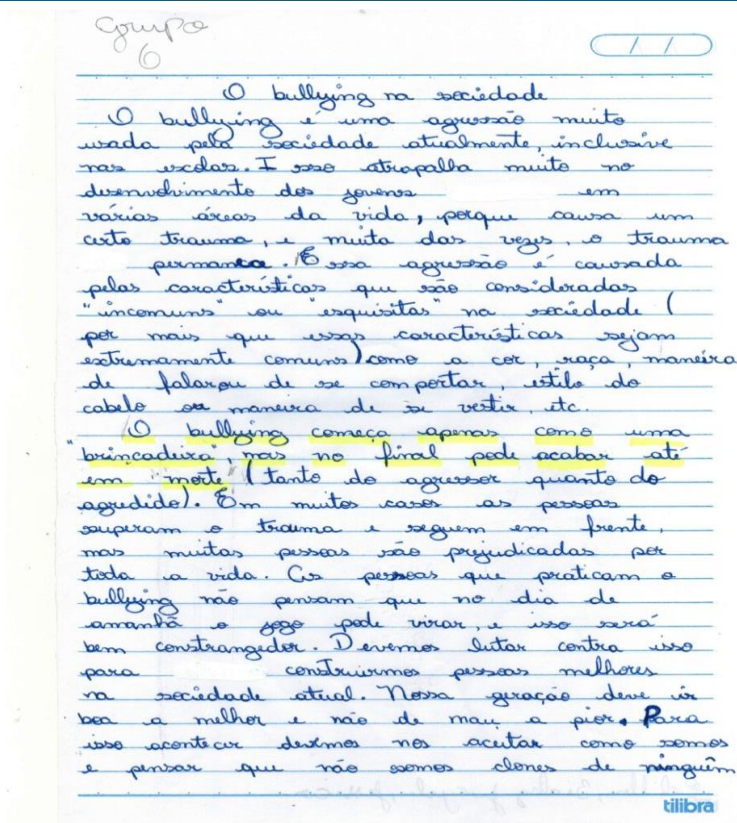 Grupo
6
/ /
O bullying na sociedade
O bullying é uma agressão muito
usada pela sociedade atualmente, inclusive
nas escolas. I sso atrapalha muito no
desenvolvimento dos jovens em
várias áreas da vida, porque causa um
certo trauma, e muita das vezes, o trauma
permaneca. Essa agressão é causada
pelas características que são consideradas
"incomuns" ou "esquisitas" na sociedade (
por mais que essas características sejam
extremamente comuns) como a cor, raça, maneira
de falar ou de se comportar, estilo do
cabelo ou maneira de se vestir, etc.
O bullying começa apenas como uma
"brincadeira", mas no final pode acabar até
em morte (tanto do agressor quanto do
agredido). Em muitos casos as pessoas
superam o trauma e seguem em frente,
mas muitas pessoas são prejudicadas por
toda a vida. As pessoas que praticam o
bullying não pensam que no dia de
amanhã o jogo pode virar, e isso será
bem constrangedor. Devemos lutar contra isso
para construirmos pessoas melhores
na sociedade atual. Nossa geração deve ir
boa a melhor e não de mau a pior. Para
isso acontecer devemos nos aceitar como somos
e pensar que não somos clones de ninguém
tilibra